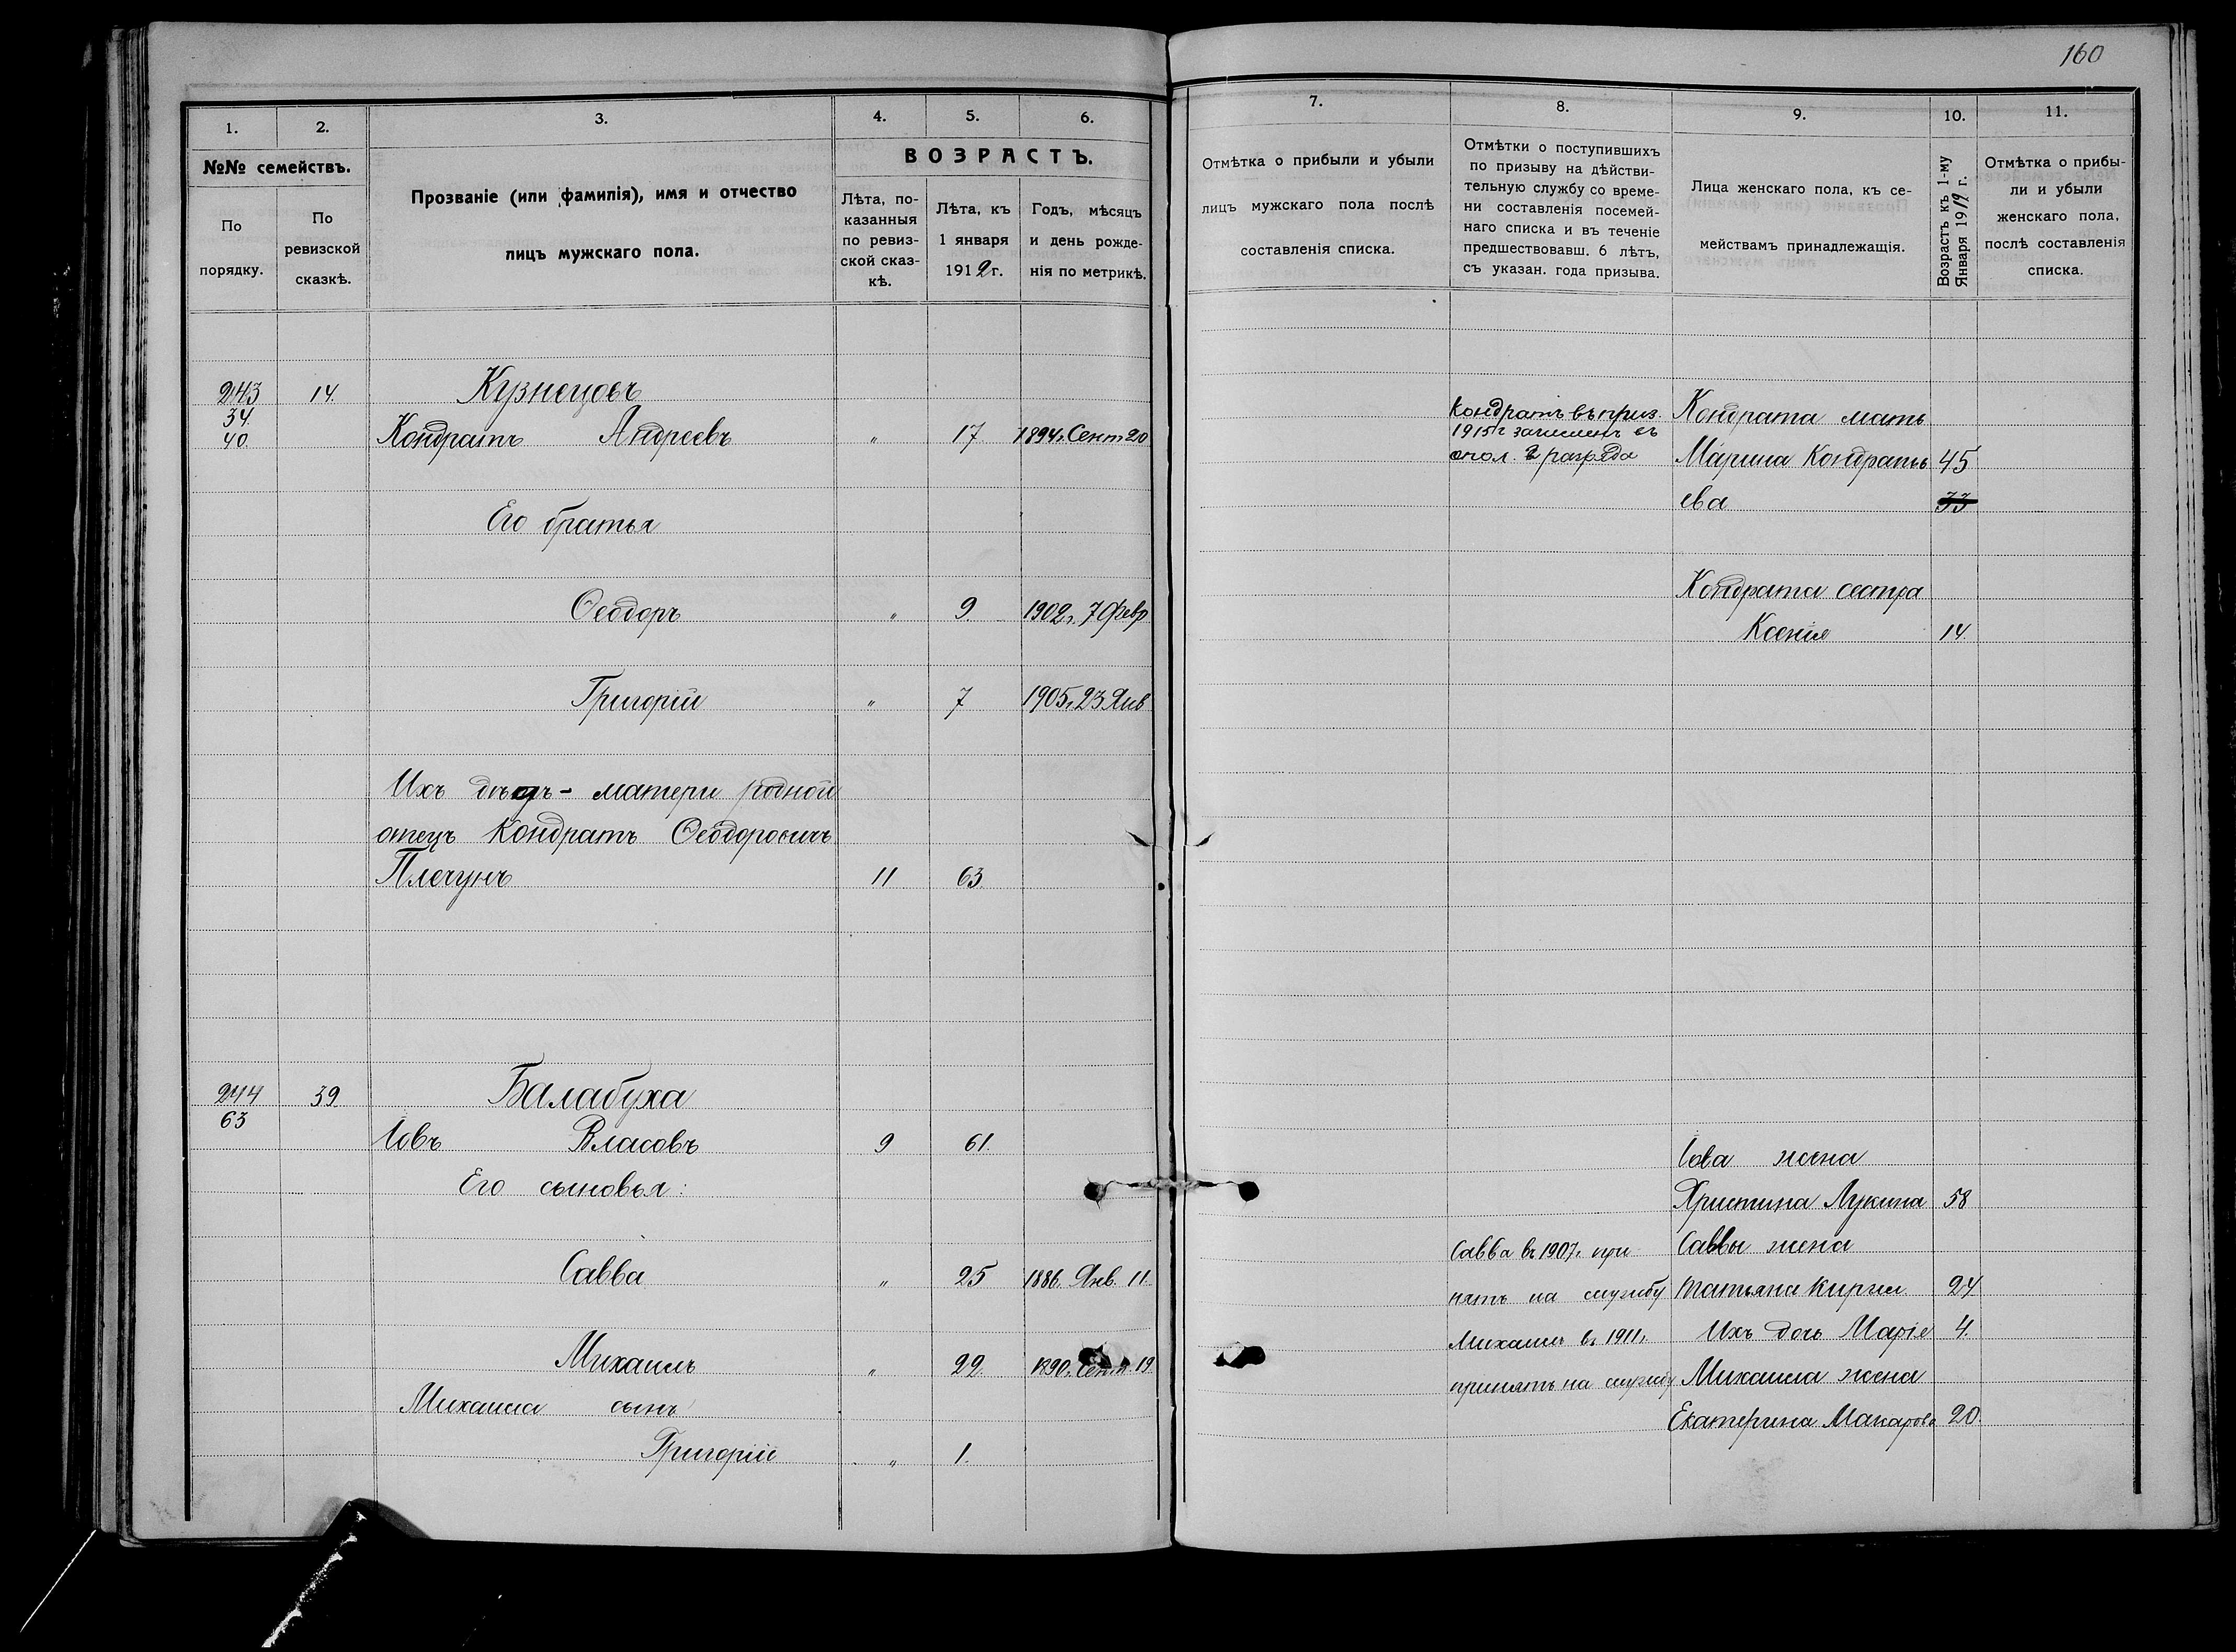 160
1.
2.
3.
4.
5.
6.
№№ семействъ.
По порядку.
По ревизской сказкѣ.
Прозваніе (или фамилія), имя и отчество
лицъ мужскаго пола.
ВОЗРАСТЪ.
Лѣта, по-
казанныя
по ревиз-
ской сказ-
кѣ.
Лѣта, къ
1 января
1912 г.
Годъ, мѣсяцъ
и день рожде-
нія по метрикѣ.
243 14. Кузнецовъ
34.
40. Кондратъ Андреевъ " 17 1894 г. Сент 20
Его братья
Ѳеодоръ " 9. 1902 г. 7 Февр
Григорій " 7 1905 г. 23 Янв
Ихъ дѣдъ - матери родной
отецъ Кондратъ Ѳеодоровичъ
Плечунъ 11 63.
244 39 Балабуха
63
Іовъ Власовъ 9 61.
Его сыновья:
Савва " 25 1886. Янв. 11.
Михаилъ " 22. 1890 г. Сент. 19
Михаила сынъ
Григорій " 1.
7.
8.
9.
10.
11.
Отмѣтка о прибыли и убыли
лицъ мужского пола послѣ
составленія списка.
Отмѣтки о поступившихъ
по призыву на дѣйстви-
тельную службу со време-
ни составленія посемей-
наго списка и въ теченіе
предшествовавш. 6 лѣтъ,
съ указан. года призыва.
Лица женскаго пола, къ се-
мействамъ принадлежащія.
Возрастъ къ 1-му
Января 1912 г.
Отмѣтка о прибы-
ли и убыли
женскаго пола,
послѣ составленія
списка.
Кондратъ въ приз. Кондрата мать
1915 г зачисленъ въ
опол. 2 разряда Марина Кондратье 45
ева 33
Кондрата сестра
Ксенія 14
Іова жена
Христина Лукина 58
Савва въ 1907 г. при- Саввы жена
нятъ на службу Татьяна Кирил. 24
Михаилъ въ 1911 г. Ихъ дочь Марія 4.
принятъ на службу Михаила жена
Екатерина Макарова 20.